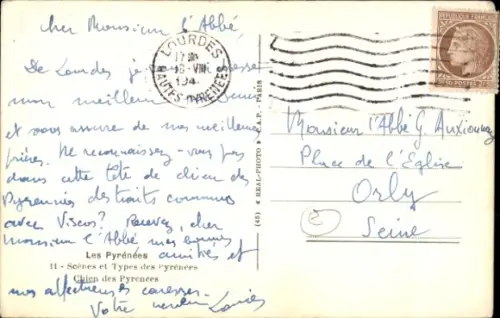 Cher Monsieur l'Abbé,
De Lourdes je
mon meilleur
et vous assure de mes meilleures
prières. Ne reconnaissez-vous pas
dans cette tête de chien des
Pyrénées des traits communs
avec Viscos? Recevez, cher
Monsieur l'Abbé mes bonnes
amitiés et
nos affectueuses caresses.
Votre
Les Pyrénées
11 - Scènes et Types des Pyrénées
Chien des Pyrénées
(45) « REAL-PHOTO » C.A.P. - PARIS
LOURDES
16-VIII
194
HAUTES-PYRENEES
Monsieur l'Abbé G.
Place de l'Eglise
Orly
Seine